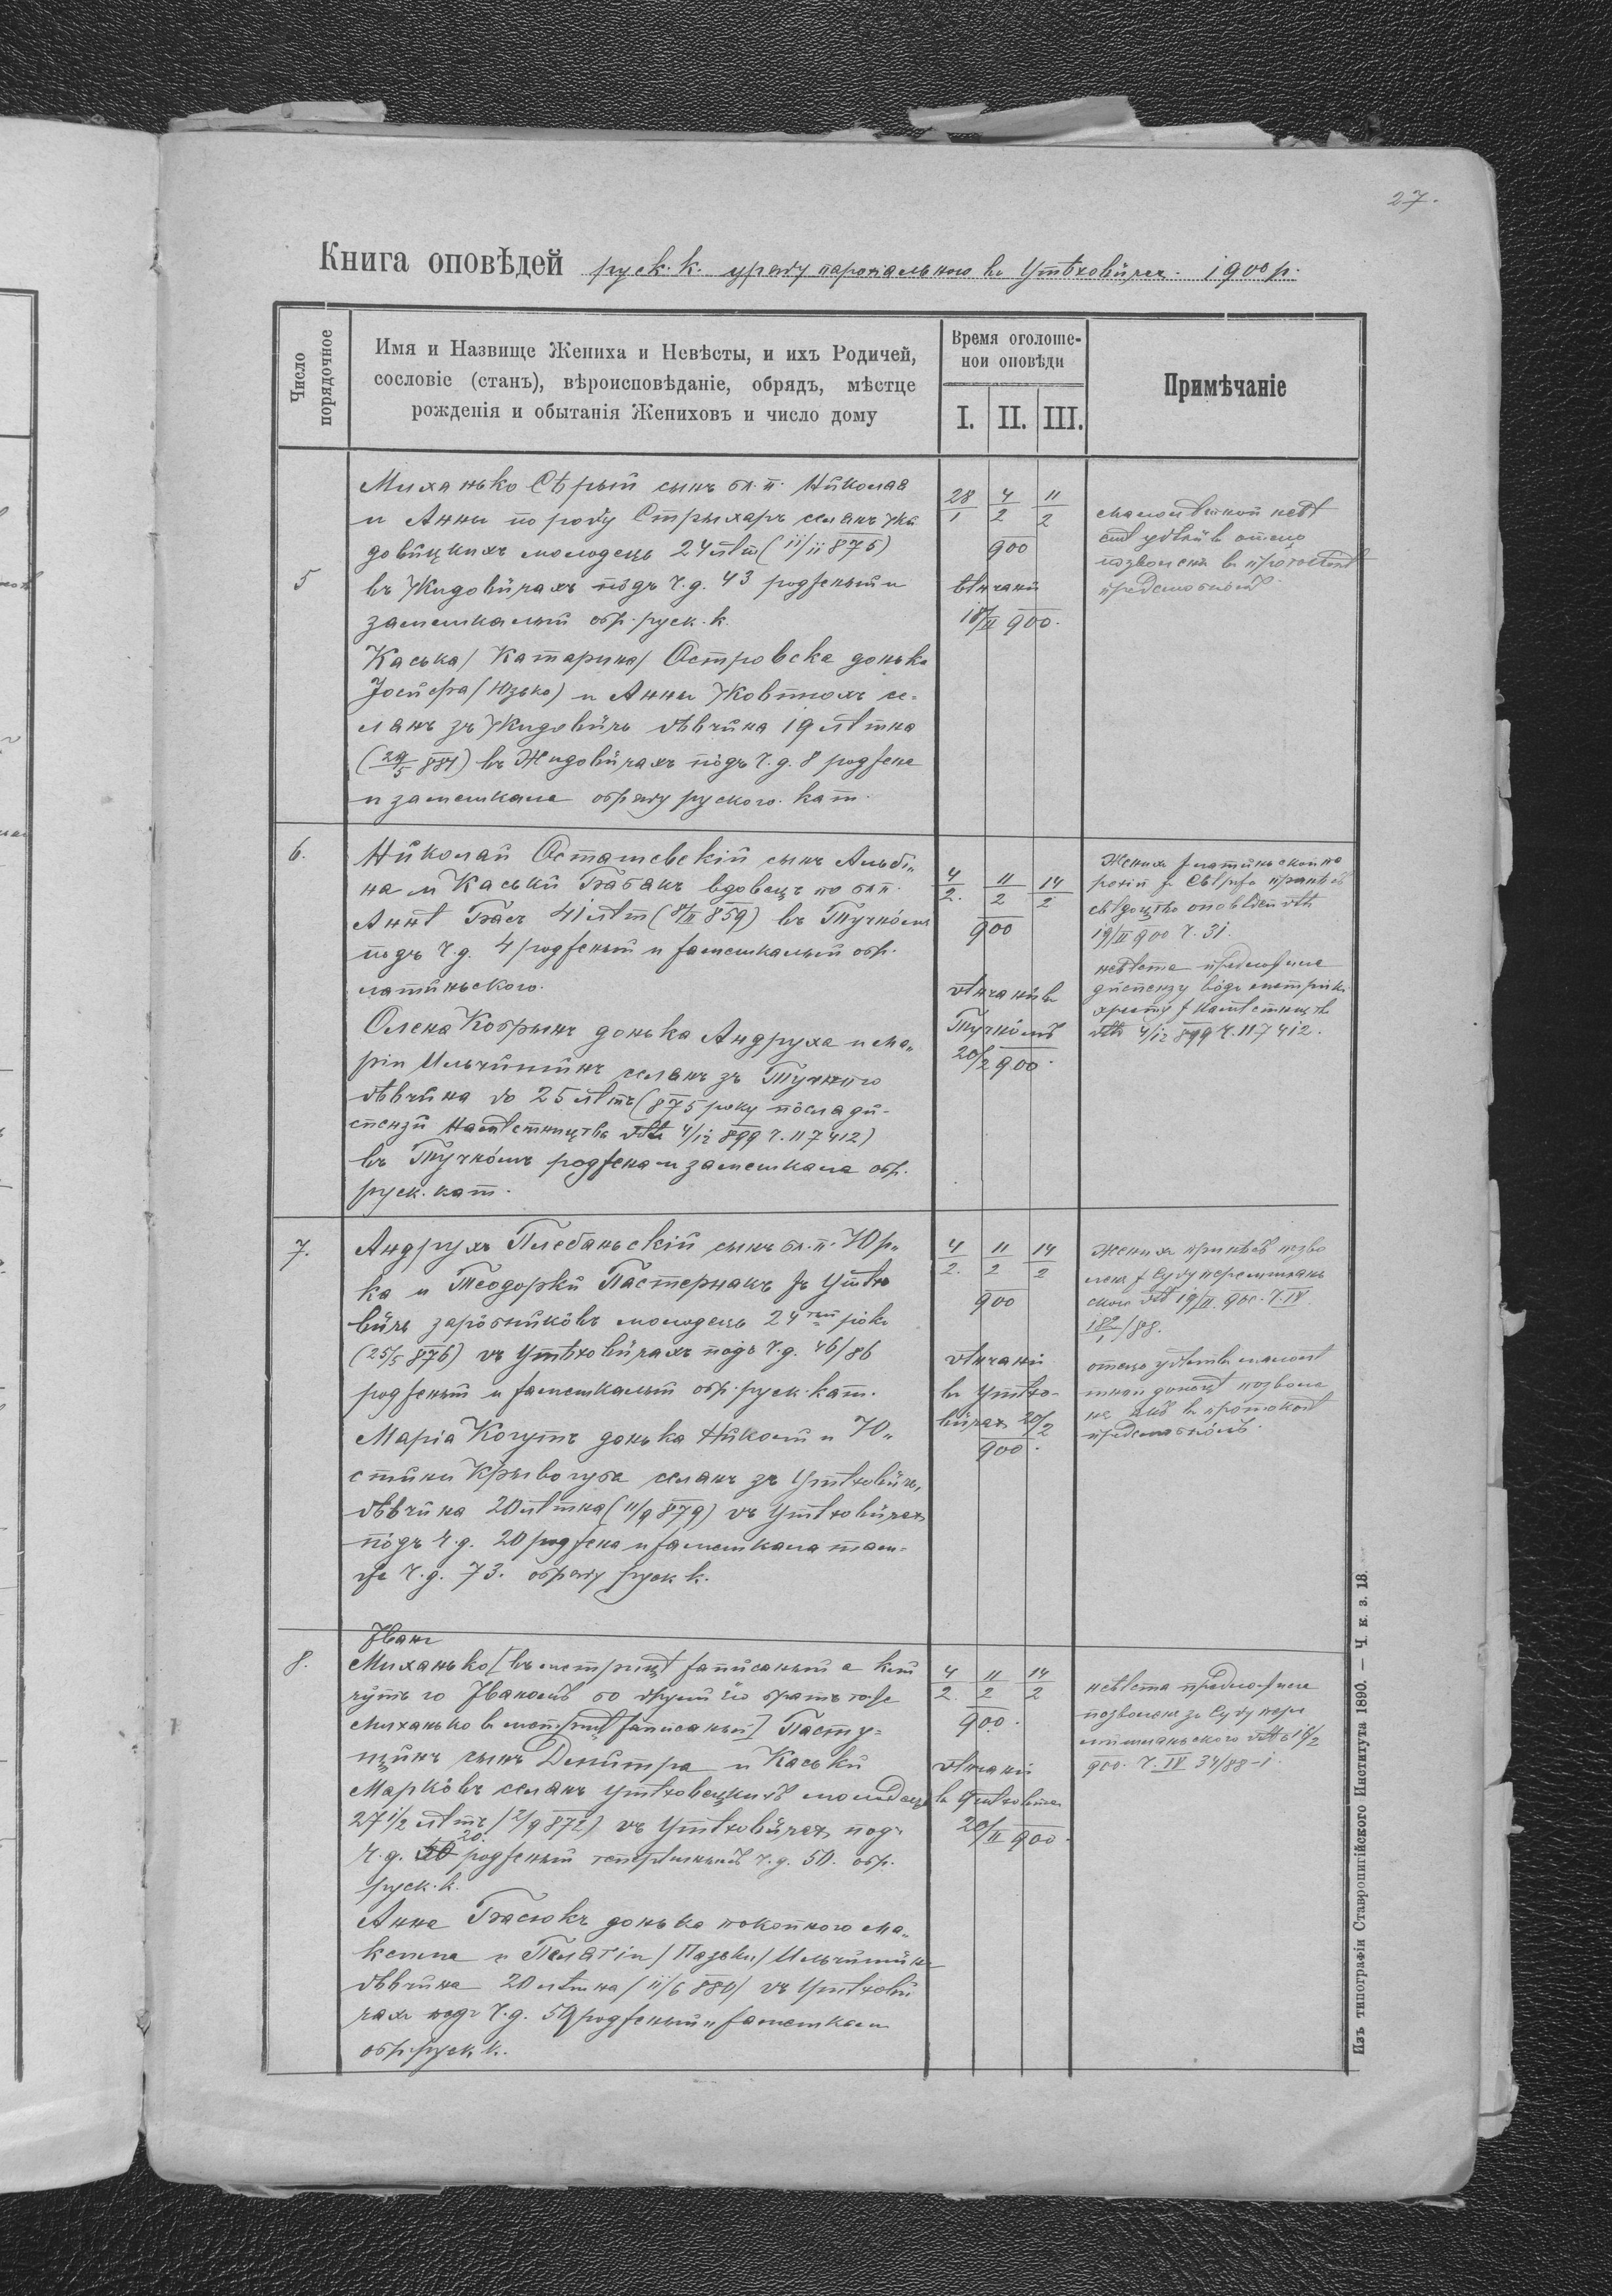 27.
Книга оповѣдей руск. к. уряду парохіального в Утѣховѝчах. 1900 р.
Число порядочное
Имя и Назвище Жениха и Невѣсты, и ихъ Родичей,
сословіе (станъ), вѣроисповѣданіе, обрядъ, мѣстце
рожденія и обытанія Жениховъ и число дому
Время оголоше-
нои оповѣди
I. II. III.
Примѣчаніе
5
Миханько Сѣрый сынъ бл. п. Николая
и Анны по роду Стрыхаръ селянъ жи
довѝцкихъ молодець 24 лѣт (11/11 875)
въ Жидовѝчахъ пôдъ ч. д. 43 родженый и
замешкалый обр. руск. к.
Каська / Катарина / Островска донька
Йосифа / Юзько) и Анны Жовтюхъ се-
лянъ зъ Жидовѝчь дѣвчина 19 лѣтна
(29/5 881) въ Жидовѝчахъ пôдъ ч. д. 8 роджена
и замешкала обряду руского. кат.
28/1 4/2 11/2
900
вѣнчаній
18/II 900.
малолѣтной невѣ
стѣ удѣлив отець
позволеня в протоколѣ
6.
Николай Осташевскій сынъ Альбі„
на и Каськи Бабакъ вдовець по бл. п.
Аннѣ Бась 41 лѣт (8/II 859) въ Тучнôмъ
пôдъ ч. д. 4 родженый и замешкалый обр.
латиньского.
Олена Кобрынъ донька Андруха и Ма„
ріи Ильчишинъ селянъ зъ Тучного
дѣвчина до 25 лѣтъ (875 року пôсля ди-
спензи Намѣстництва дтѣ 4/12 899 ч. 117412)
въ Тучнôмъ роджена и замешкала обр.
руск. кат.
4/2. 11/2 14/2
900
вѣнчаній в
Тучнôмъ
20/2 900.
Жених з латиньскои па
рохіи з Свѣржа принѣсъ
свѣдоцтво оповѣдей дтѣ
19/II 900 ч. 31.
невѣста предложила
диспензу вôдъ метрики
хресту з Намѣстництва
дтѣ 4/12 899 ч. 117412.
7.
Андрухъ Плебаньскій сынъ бл. п. Юр„
ка и Теодорки Пастернакъ зъ Утѣхо
вѝчь зарôбникôвъ молодець 24 тый рôкъ
(25/5 876) въ Утѣховѝчахъ пôдъ ч. д. 46/86
родженый и замешкалый обр. руск. кат.
Марія Когутъ донька Николы и Ю„
стины Крывогуба селянъ зъ Утѣховѝчь,
дѣвчина 20 лѣтна (11/9 879) въ Утѣховѝчахъ
пôдъ ч. д. 20 роджена и замешкала там-
же ч. д. 73. обряду руск. к.
4/2. 11/2 14/2
900
вѣнчаній
в Утѣхо-
вѝчах 20/2
900.
Жених принѣсъ позво
леня з Суду перемишлянь
ского дтѣ 19/II. 900. ч. IV
182/1 /88.
отець удѣлив малолѣ
тной доньцѣ позволе
ня в протоколѣ
8.
Иванъ
Миханько [въ метрицѣ записаный а кли
чуть го Иваномъ бо другий его братъ тоже
Миханько в метрицѣ записаный] Пасту-
щинъ сынъ Димитра и Каськи
Маркôвъ селянъ Утѣховецкихъ молодець
27 1/2 лѣтъ / 2/9 872) въ Утѣховѝчахъ под
ч. д. 50 20. родженый ч. д. 50. обр.
руск. к.
Анна Басюкъ донька покойного Ма„
ксима и Пелагіи / Пазьки / Ильчишинъ
дѣвчина 20 лѣтна / 11/6 880/ въ Утѣховѝ
чах подъ ч. д. 59 родженый и замешкалы
обр. руск. к.
4/2. 11/2 14/2
900.
вѣнчаній
в Утѣховѝчах
20/II 900.
невѣста предложила
позволеня зъ Суду пере
мишляньского дтѣ 16/2
900. ч. IV 34/88-1.
Изъ типографіи Ставропигійского Института 1890. — Ч. к. з. 18.